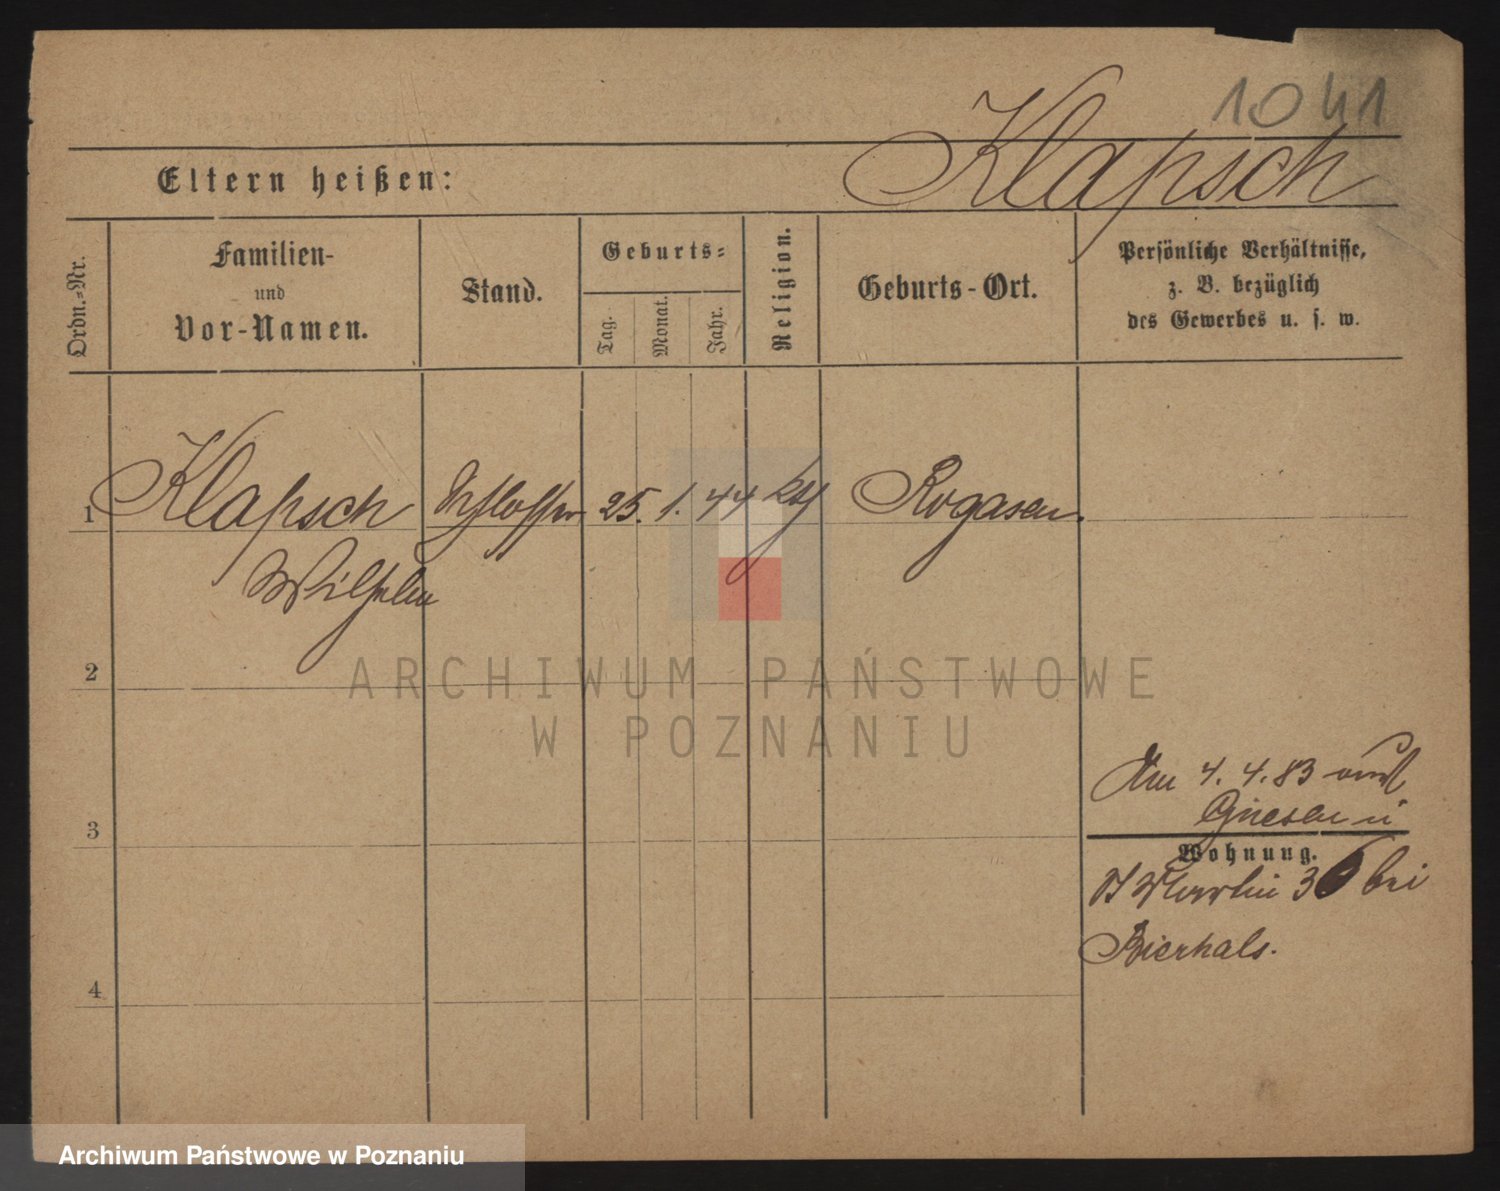 1041
Klapsch
Eltern heißen:
Ordn.=Nr.
Familien-
und
Vor-Namen.
Stand.
Geburts=
Tag.
Monat.
Jahr.
Religion.
Geburts-Ort.
Persönliche Verhältnisse,
z. B. bezüglich
des Gewerbes u. s. w.
1 Klapsch Schlosser 25. 1. 44 kth Rogasen.
Wilhelm
2
ARCHIWUM PAŃSTWOWE
W POZNANIU
Am 4. 4. 83 aus
Gnesen
3
Wohnung.
St Martin 36 bei
Bierhals.
4
Archiwum Państwowe w Poznaniu